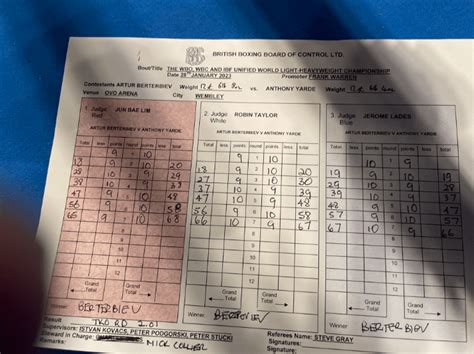 BRITISH BOXING BOARD OF CONTROL LTD.
Bout/Title THE WBO, WBC AND IBF UNIFIED WORLD LIGHT-HEAVYWEIGHT CHAMPIONSHIP
Date 28th JANUARY 2023 Promoter FRANK WARREN
Contestants ARTUR BERTERBIEV Weight vs. ANTHONY YARDE Weight
Venue OVO ARENA City WEMBLEY
1. Judge JUN BAE LIM
Red
ARTUR BERTERBIEV V ANTHONY YARDE
Total less points round points less Total
9 1 10
9 2 10 20
10 3 9 29
4
47 9 5 10 48
56 9 6 10 58
7 68
8
9
10
11
12
Grand Total Grand Total
Winner BERTERBIEV
2. Judge ROBIN TAYLOR
White
ARTUR BERTERBIEV V ANTHONY YARDE
Total less points round points less Total
9 1 10
18 9 2 10 20
27 9 3 10 30
37 10 4 9 39
47 10 5 9 48
56 9 6 10 58
66 10 7 9 67
8
9
10
11
12
Grand Total Grand Total
Winner: BERTERBIEV
3. Judge JEROME LADES
Blue
ARTUR BERTERBIEV V ANTHONY YARDE
Total less points round points less Total
10 1 9
19 9 2 10 19
29 10 3 9 28
38 9 4 10 38
47 9 5 10 48
57 10 6 9 57
67 10 7 9
8
9
10
11
12
Grand Total Grand Total
Winner: BERTERBIEV
Result TKO RD 2.01
Supervisors: ISTVAN KOVACS, PETER PODGORSKI, PETER STUCKI
Referees Name: STEVE GRAY
Steward in Charge:
Signature:
Remarks: MICK COLLIER
Signature: